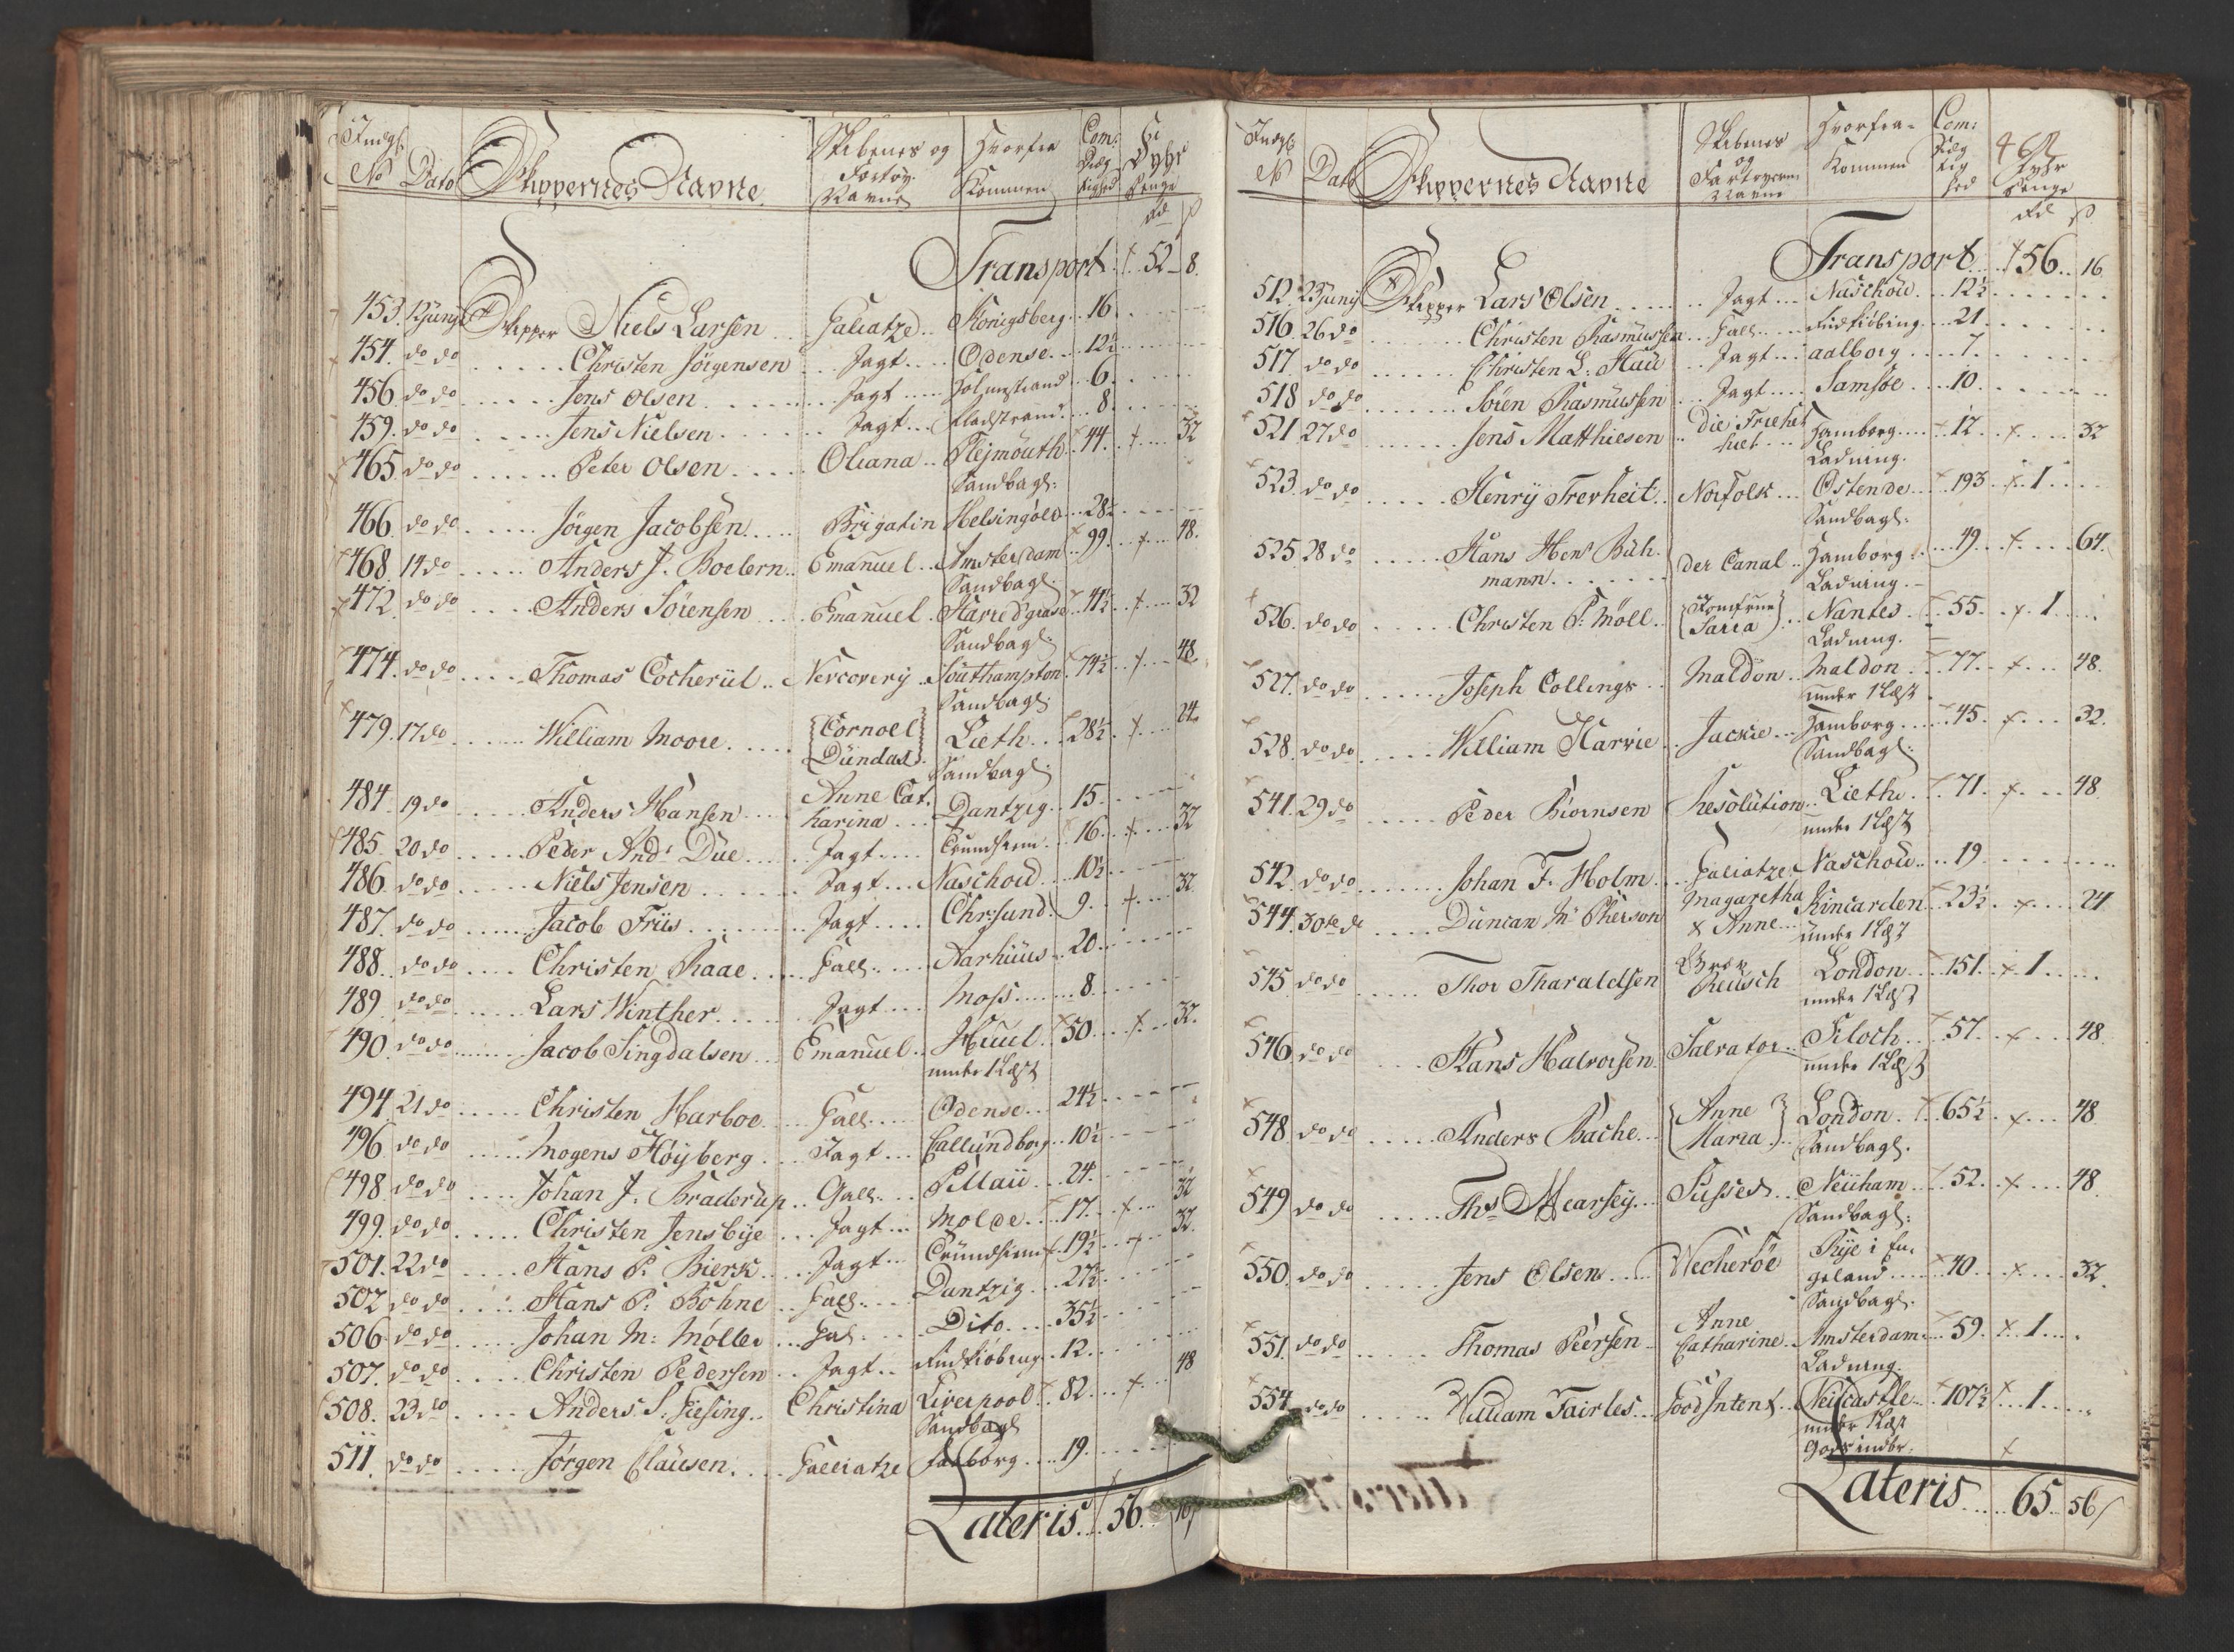 Indg. No Dato Skippernes Navne Skibenes og Fartøy. Navne Hvorfra Kommen Com: Dræg tighed Fyhr Penge
Rd ß
Transport 52 8
453. 12 Junij Skipper Niels Larsen Galiatze Königsberg 16
454. do do Christen Jörgensen Jagt Odense 12½
456. do do Jens Olsen Jagt Holmestrand 6
459. do do Jens Nielsen Jagt Fladstrand 8
465. do do Peter Olsen Oliana Plejmouth 44 32
Sandbagl:
466. do do Jörgen Jacobsen Brigatin Helsingöer 28½
468. 14 do Anders J. Boelern Emanuel Amsterdam 99 48
Sandbagl:
472. do do Anders Sörensen Emanuel Havre d'grace 41½ 32
Sandbagl:
474. do do Thomas Cocheriil Nercovery Southampton 74½ 48
Sandbagl:
479. 17 do William Moore Cornoel Lieth 28½ 24
Dundas Sandbagl:
484. 19 do Anders Hansen Anne Cat. Dantzig 15
harina
485. 20 do Peder And: Düe Jagt Trundhiem 16 32
486. do do Niels Jensen Jagt Naschou 10½
487. do do Jacob Friis Jagt Chr:sund 9 32
488. do do Christen Raae Gall. Aarhuus 20
489. do do Lars Winther Jagt Moss 8
490. do do Jacob Singdalsen Emanuel Huul 50 32
under 1 Læst
494. 21 do Christen Harboe Gall. Odense 24½
496. do do Mogens Höyberg Jagt Callundborg 10½
498. do do Johan J. Braderup Gall. Pillau 24
499. do do Christen Jensbye Jagt Molde 17 32
501. 22 do Hans P. Bierk Jagt Trundhiem 19½ 32
502. do do Hans P. Böhne Gall. Dantzig 27½
506. do do Johan M: Møller Gal. Dito 35½
507. do do Christen Pedersen Jagt Rudkiöbing 12
508. 23 do Anders S. Giesing Christina Liverpool 82 48
Sandbagl
511. do do Jörgen Clausen Galliatze Faaborg 19
Lateris 56 16
Indg. No Dato Skippernes Navne Skibenes og Fartøyernes Navne Hvorfra Kommen Com: Dræg tig hed Fyhr Penge
Rd ß
Transport 56 16
512. 23 Junij Skipper Lars Olsen Jagt Naschou 12½
516. 26 do Christen Rasmussen Gall. Rudkiöbing 21
517. do do Christen L. Hau Jagt aalborg 7
518. do do Sören Rasmussen Jagt Samsöe 10
521. 27 do Jens Matthiesen die Friehet Hamborg 12 32
Ladning.
523. do do Henry Treyheit Norfolk Ostende 193 1
Sandbagl:
525. 28 do Hans Hen: Büh. der Canal Hamborg 49 64
mann Ladning.
526. do do Christen P. Möll Jomfrue Nantes 55 1
Saria Ladning.
527. do do Joseph Collings Maldon Maldon 77 48
under 1 Læst
528. do do William Harvie Jackie Hamborg 45 32
Sandbagl:
541. 29 do Peder Biörnsen Resolution Lieth 71 48
under 1 Læst
542. do do Johan F. Holm Galiatze Naschou 19
544. 30te do Duncan Mc Pherson Magaretha Kincarden 23½ 24
& Anne under 1 Læst
545. do do Thor Tharaldsen Grev London 151 1
Reitsch under 1 Læst
546. do do Hans Halvorsen Salvator Filoch 57 48
under 1 Læst
548. do do Anders Bache Anne London 65½ 48
Maria Sandbagl.
549. do do Ths Mearsey Sussex Neuham 52 48
Sandbagl:
550. do do Jens Olsen Wecheröe Rye i En. 40 32
geland
Sandbagl.
551. do do Thomas Peersen Anne Catharine Amsterdam 59 1
Ladning.
554. do do William Fairles Good Intent Neucastle 107½ 1
under 1 Læst
Gods indbr:
Lateris 65 56